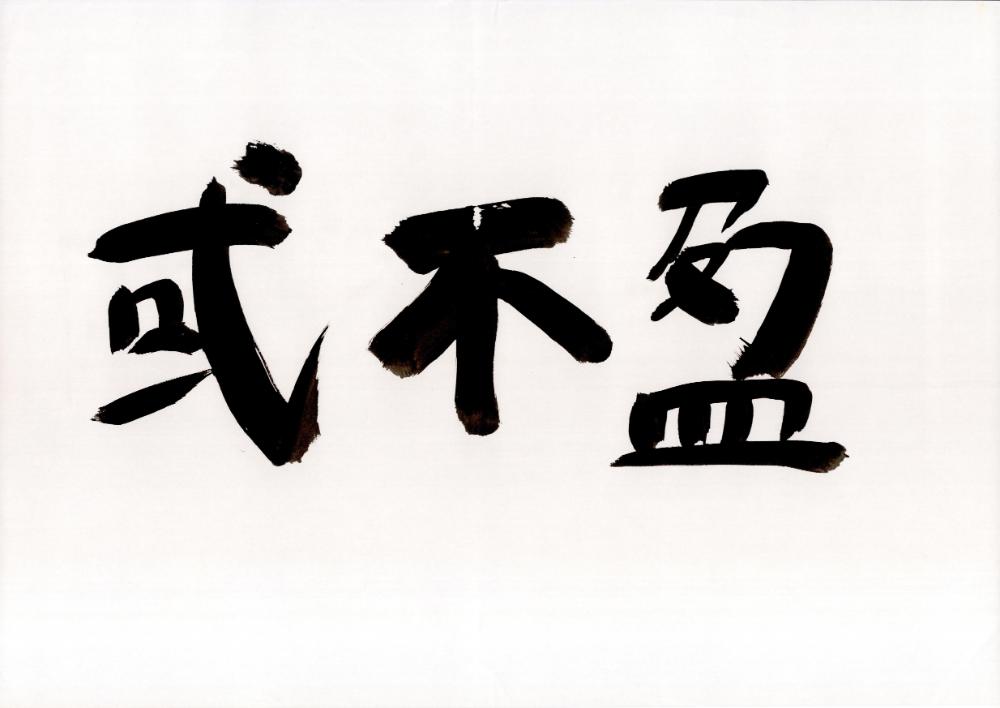 或不盈